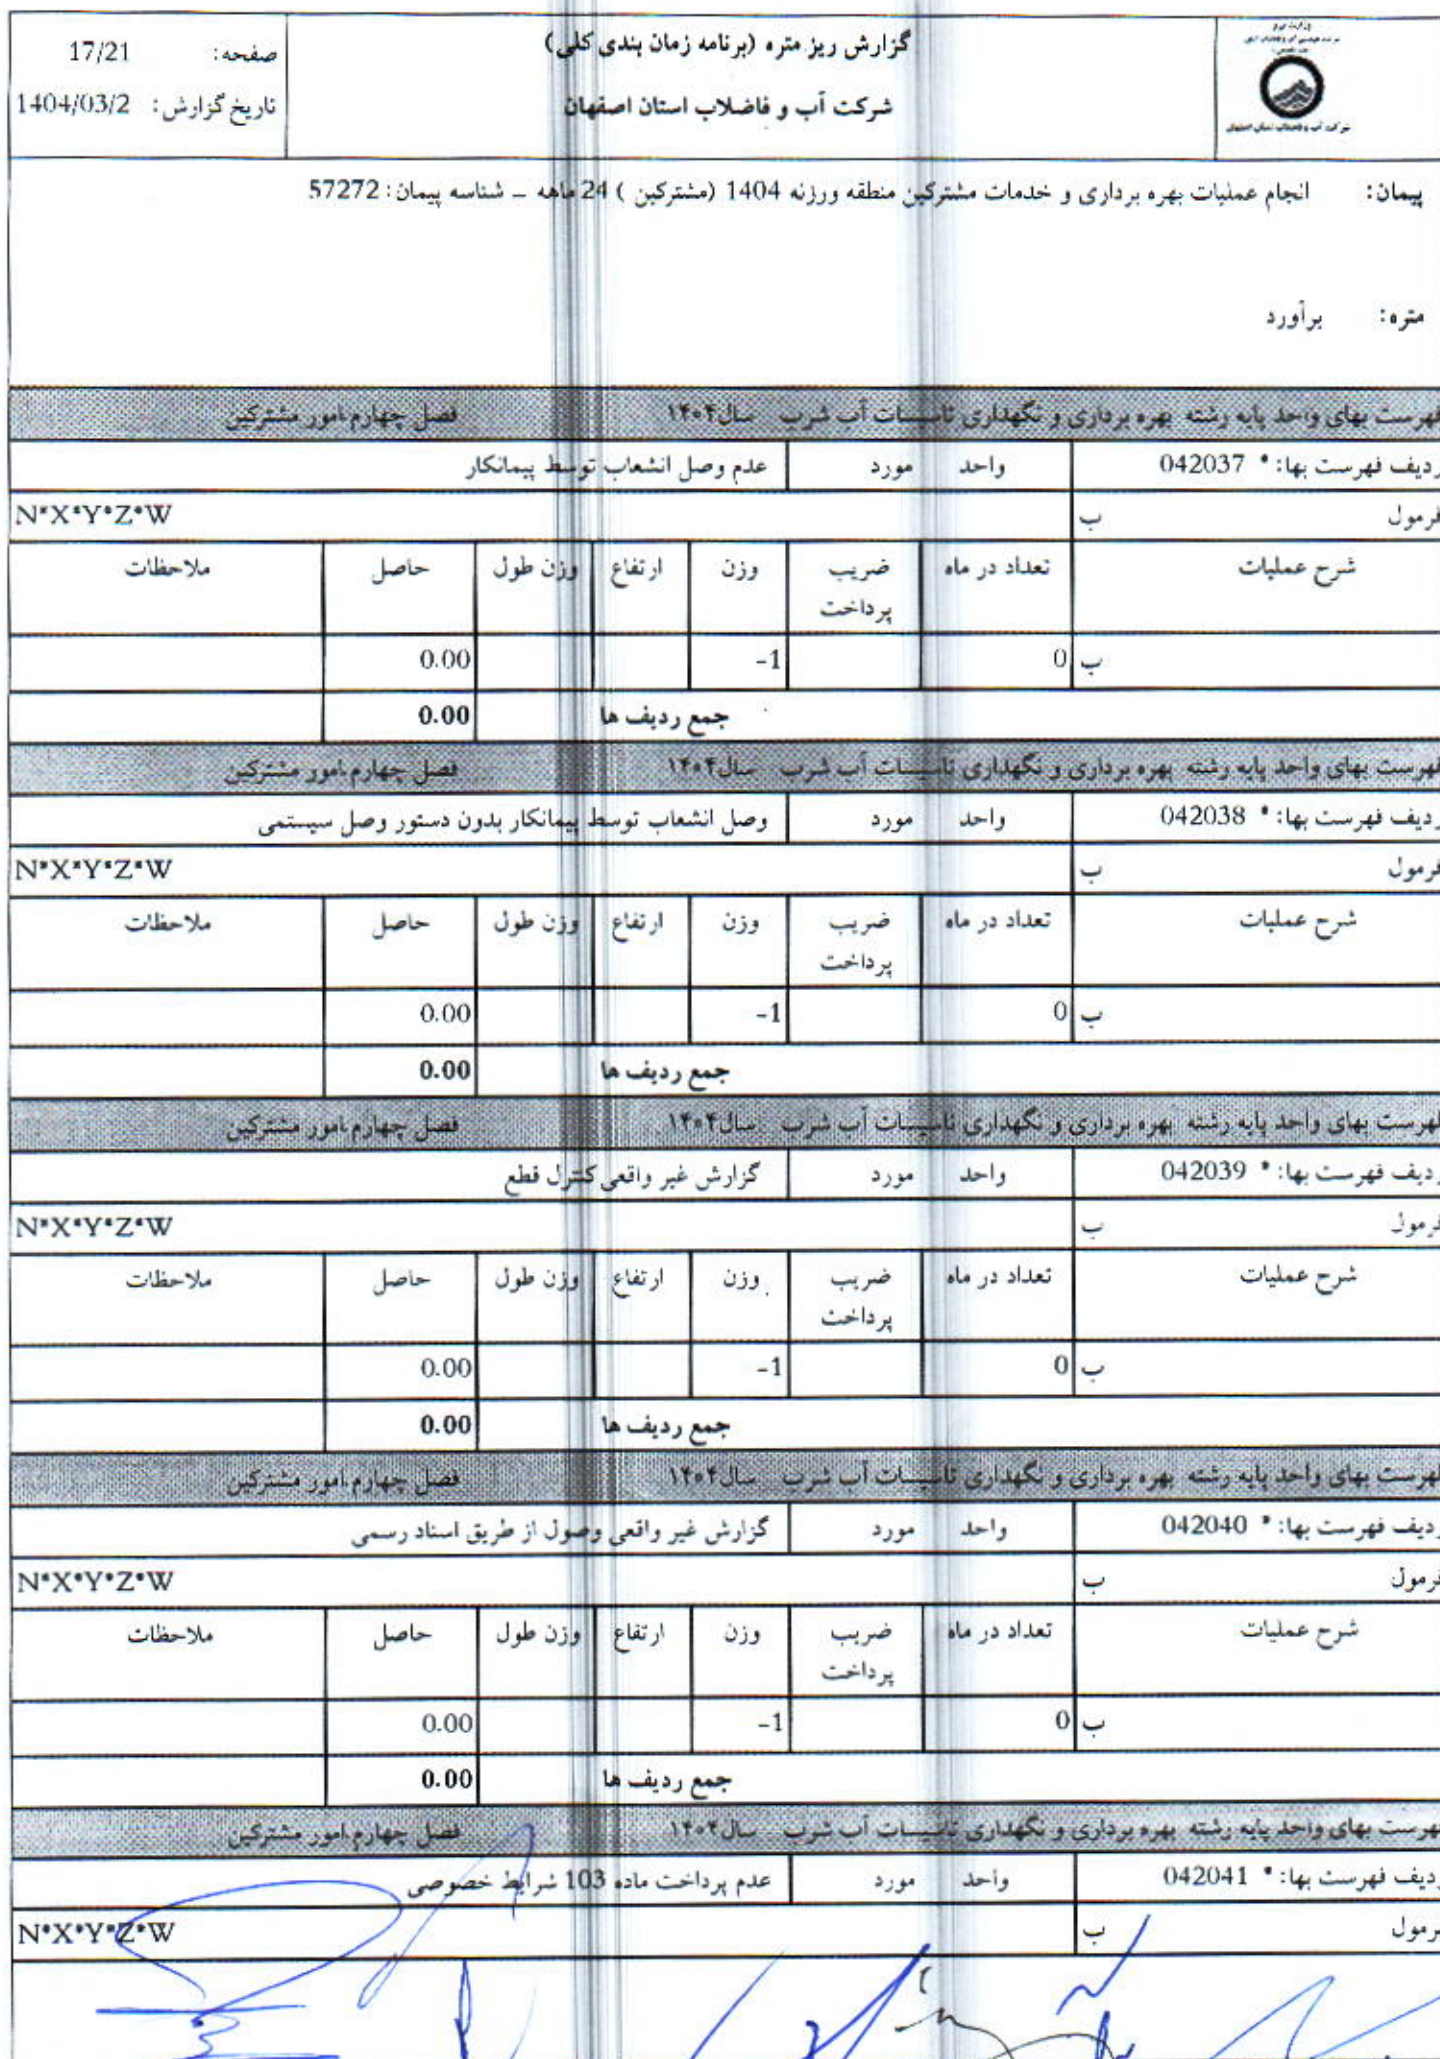 گزارش ریز متره (برنامه زمان بندی کلی)
شرکت آب و فاضلاب استان اصفهان
صفحه: 17/21
تاریخ گزارش: 1404/03/2
شرکت آب و فاضلاب استان اصفهان
پیمان: انجام عملیات بهره برداری و خدمات مشترکین منطقه ورزنه 1404 (مشترکین ) 24 ماهه _ شناسه پیمان: 57272
متره: برآورد
فهرست بهای واحد پایه رشته بهره برداری و نگهداری تاسیسات آب شرب سال۱۴۰۴ فصل چهارم.امور مشترکین
ردیف فهرست بها: * 042037 واحد مورد عدم وصل انشعاب توسط پیمانکار
فرمول ب N*X*Y*Z*W
شرح عملیات تعداد در ماه ضریب پرداخت وزن ارتفاع وزن طول حاصل ملاحظات
ب 0 -1 0.00
جمع ردیف ها 0.00
فهرست بهای واحد پایه رشته بهره برداری و نگهداری تاسیسات آب شرب سال۱۴۰۴ فصل چهارم.امور مشترکین
ردیف فهرست بها: * 042038 واحد مورد وصل انشعاب توسط پیمانکار بدون دستور وصل سیستمی
فرمول ب N*X*Y*Z*W
شرح عملیات تعداد در ماه ضریب پرداخت وزن ارتفاع وزن طول حاصل ملاحظات
ب 0 -1 0.00
جمع ردیف ها 0.00
فهرست بهای واحد پایه رشته بهره برداری و نگهداری تاسیسات آب شرب سال۱۴۰۴ فصل چهارم.امور مشترکین
ردیف فهرست بها: * 042039 واحد مورد گزارش غیر واقعی کنترل قطع
فرمول ب N*X*Y*Z*W
شرح عملیات تعداد در ماه ضریب پرداخت وزن ارتفاع وزن طول حاصل ملاحظات
ب 0 -1 0.00
جمع ردیف ها 0.00
فهرست بهای واحد پایه رشته بهره برداری و نگهداری تاسیسات آب شرب سال۱۴۰۴ فصل چهارم.امور مشترکین
ردیف فهرست بها: * 042040 واحد مورد گزارش غیر واقعی وصول از طریق اسناد رسمی
فرمول ب N*X*Y*Z*W
شرح عملیات تعداد در ماه ضریب پرداخت وزن ارتفاع وزن طول حاصل ملاحظات
ب 0 -1 0.00
جمع ردیف ها 0.00
فهرست بهای واحد پایه رشته بهره برداری و نگهداری تاسیسات آب شرب سال۱۴۰۴ فصل چهارم.امور مشترکین
ردیف فهرست بها: * 042041 واحد مورد عدم پرداخت ماده 103 شرایط خصوصی
فرمول ب N*X*Y*Z*W